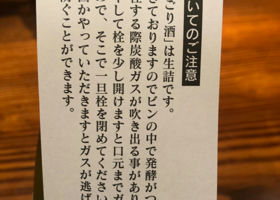 いてのご注意
なり酒」は生詰です。
きておりますのでビンの中で発酵がつ
する際炭酸ガスが吹き出る事があり
して栓を少し開けますと口元までガ
ので、そこで一旦栓を閉めてください
回かやっていただきますとガスが逃げ
防ぐことができます。